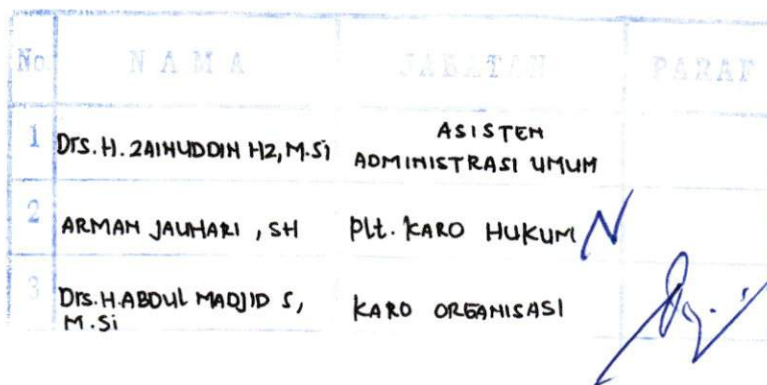 No NAMA JABATAN PARAF
1 Drs. H. ZAINUDDIN HZ, M.Si ASISTEN
ADMINISTRASI UMUM
2 ARMAN JAUHARI, SH Plt. KARO HUKUM
3 Drs. H. ABDUL MADJID S, KARO ORGANISASI
M.Si